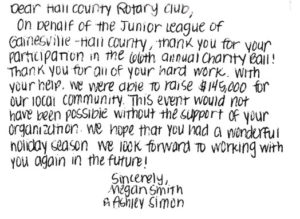 Dear Hall County Rotary Club,
On behalf of the Junior League of
Gainesville-Hall County, thank you for your
participation in the 66th annual charity ball!
Thank you for all of your hard work. With
your help, we were able to raise $145,000 for
our local community. This event would not
have been possible without the support of your
organization. We hope that you had a wonderful
holiday season. We look forward to working with
you again in the future!
Sincerely,
Megan Smith
& Ashley Simon